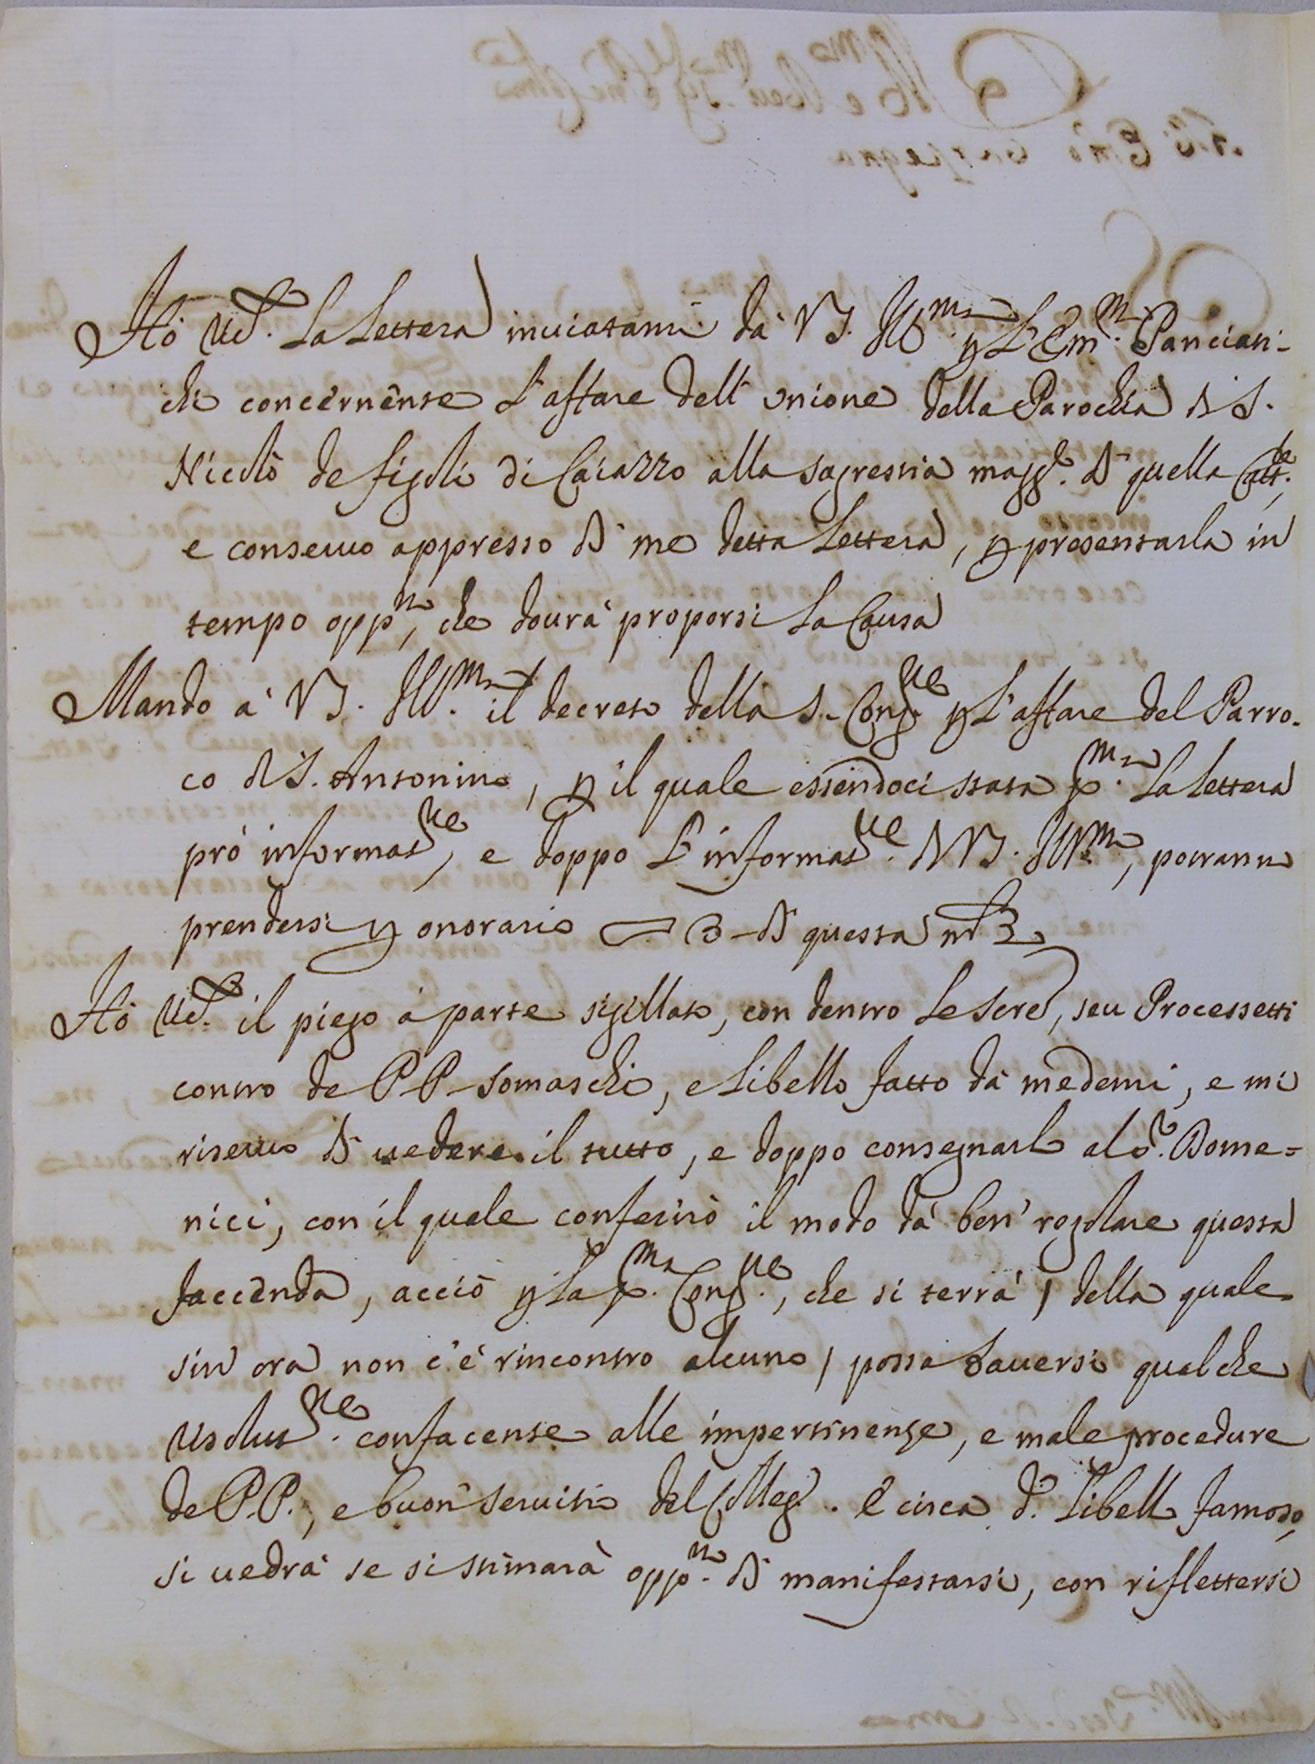 Hò ric.ta la lettera inviatami da V.S. Ill.ma p l'Em.mo Panciati-
chi concernente l'affare dell'unione della Parochia di S.
Nicolò de figoli di Caiazzo alla sagrestia magg.re di quella Catt.le,
e conservo appresso di me detta lettera, p presentarla in
tempo opp.no, che dovrà proporsi la Causa
Mando à V.S. Ill.ma il decreto della S. Cong.ne p l'affare del Parro-
co di S. Antonino, p il quale essendoci stata p.ma la lettera
prò informat.ne, e doppo l'informat.ne di V.S. Ill.ma, potranno
prendersi p onorario 3 di questa m.ta
Hò ric.to il piego à parte sigillato, con dentro le scre, seu Processetti
contro de P.P. Somaschi, e libello fatto da medemi, e mi
riservo di vedere il tutto, e doppo consegnarlo al S.r Dome=
nici, con il quale conferirò il modo da ben regolare questa
faccenda, acciò p la p.ma Cong.ne, che si terrà / della quale
sin ora non c'è rincontro alcuno / possa haversi qualche
resolut.ne confacente alle impertinenze, e male procedure
de P.P., e buon servitio del Colleg.o. E circa d.o libello famoso,
si vedrà se si stimarà opp.no di manifestarsi, con riflettersi